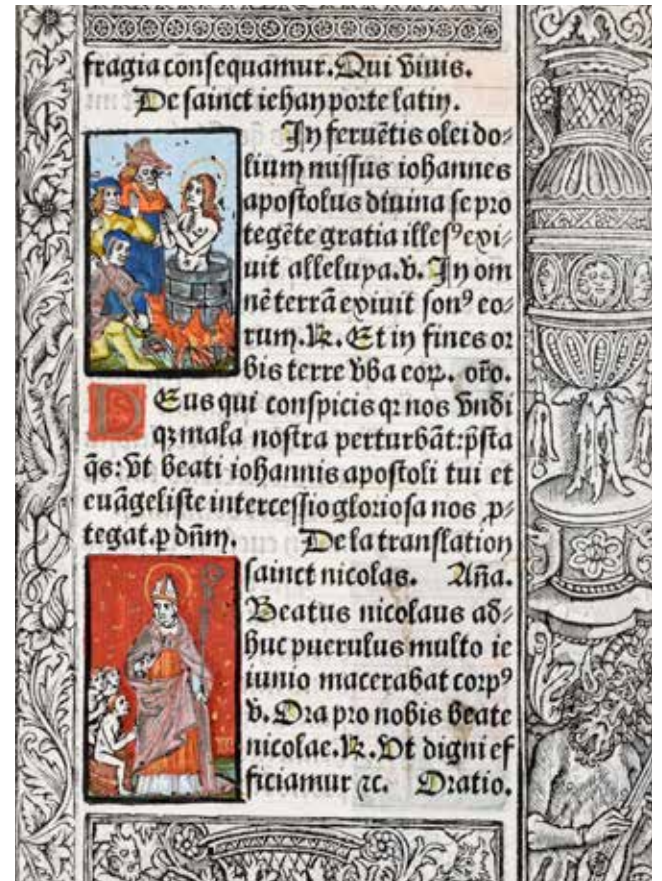 fragia consequamur. Qui viuis.
De sainct iehan porte latin.
In feruētis olei do⸗
lium missus iohannes
apostolus diuina se pro
tegēte gratia illesꝰ exi⸗
uit alleluya. v̄. In om
nē terrā exiuit sonꝰ eo⸗
rum. ℟. Et in fines or
bis terre v̄ba eoꝝ. or̄o.
DEus qui conspicis qꝛ nos vndi
qꝫ mala nostra perturbāt: p̄sta
q̄s: vt beati iohannis apostoli tui et
euāgeliste intercessio gloriosa nos ꝓ⸗
tegat. ꝑ dn̄m. De la translation
sainct nicolas. Añā.
Beatus nicolaus ad⸗
huc puerulus multo ie
iunio macerabat corpꝰ
v̄. Ora pro nobis beate
nicolae. ℟. Vt digni ef
ficiamur ⁊c. Oratio.